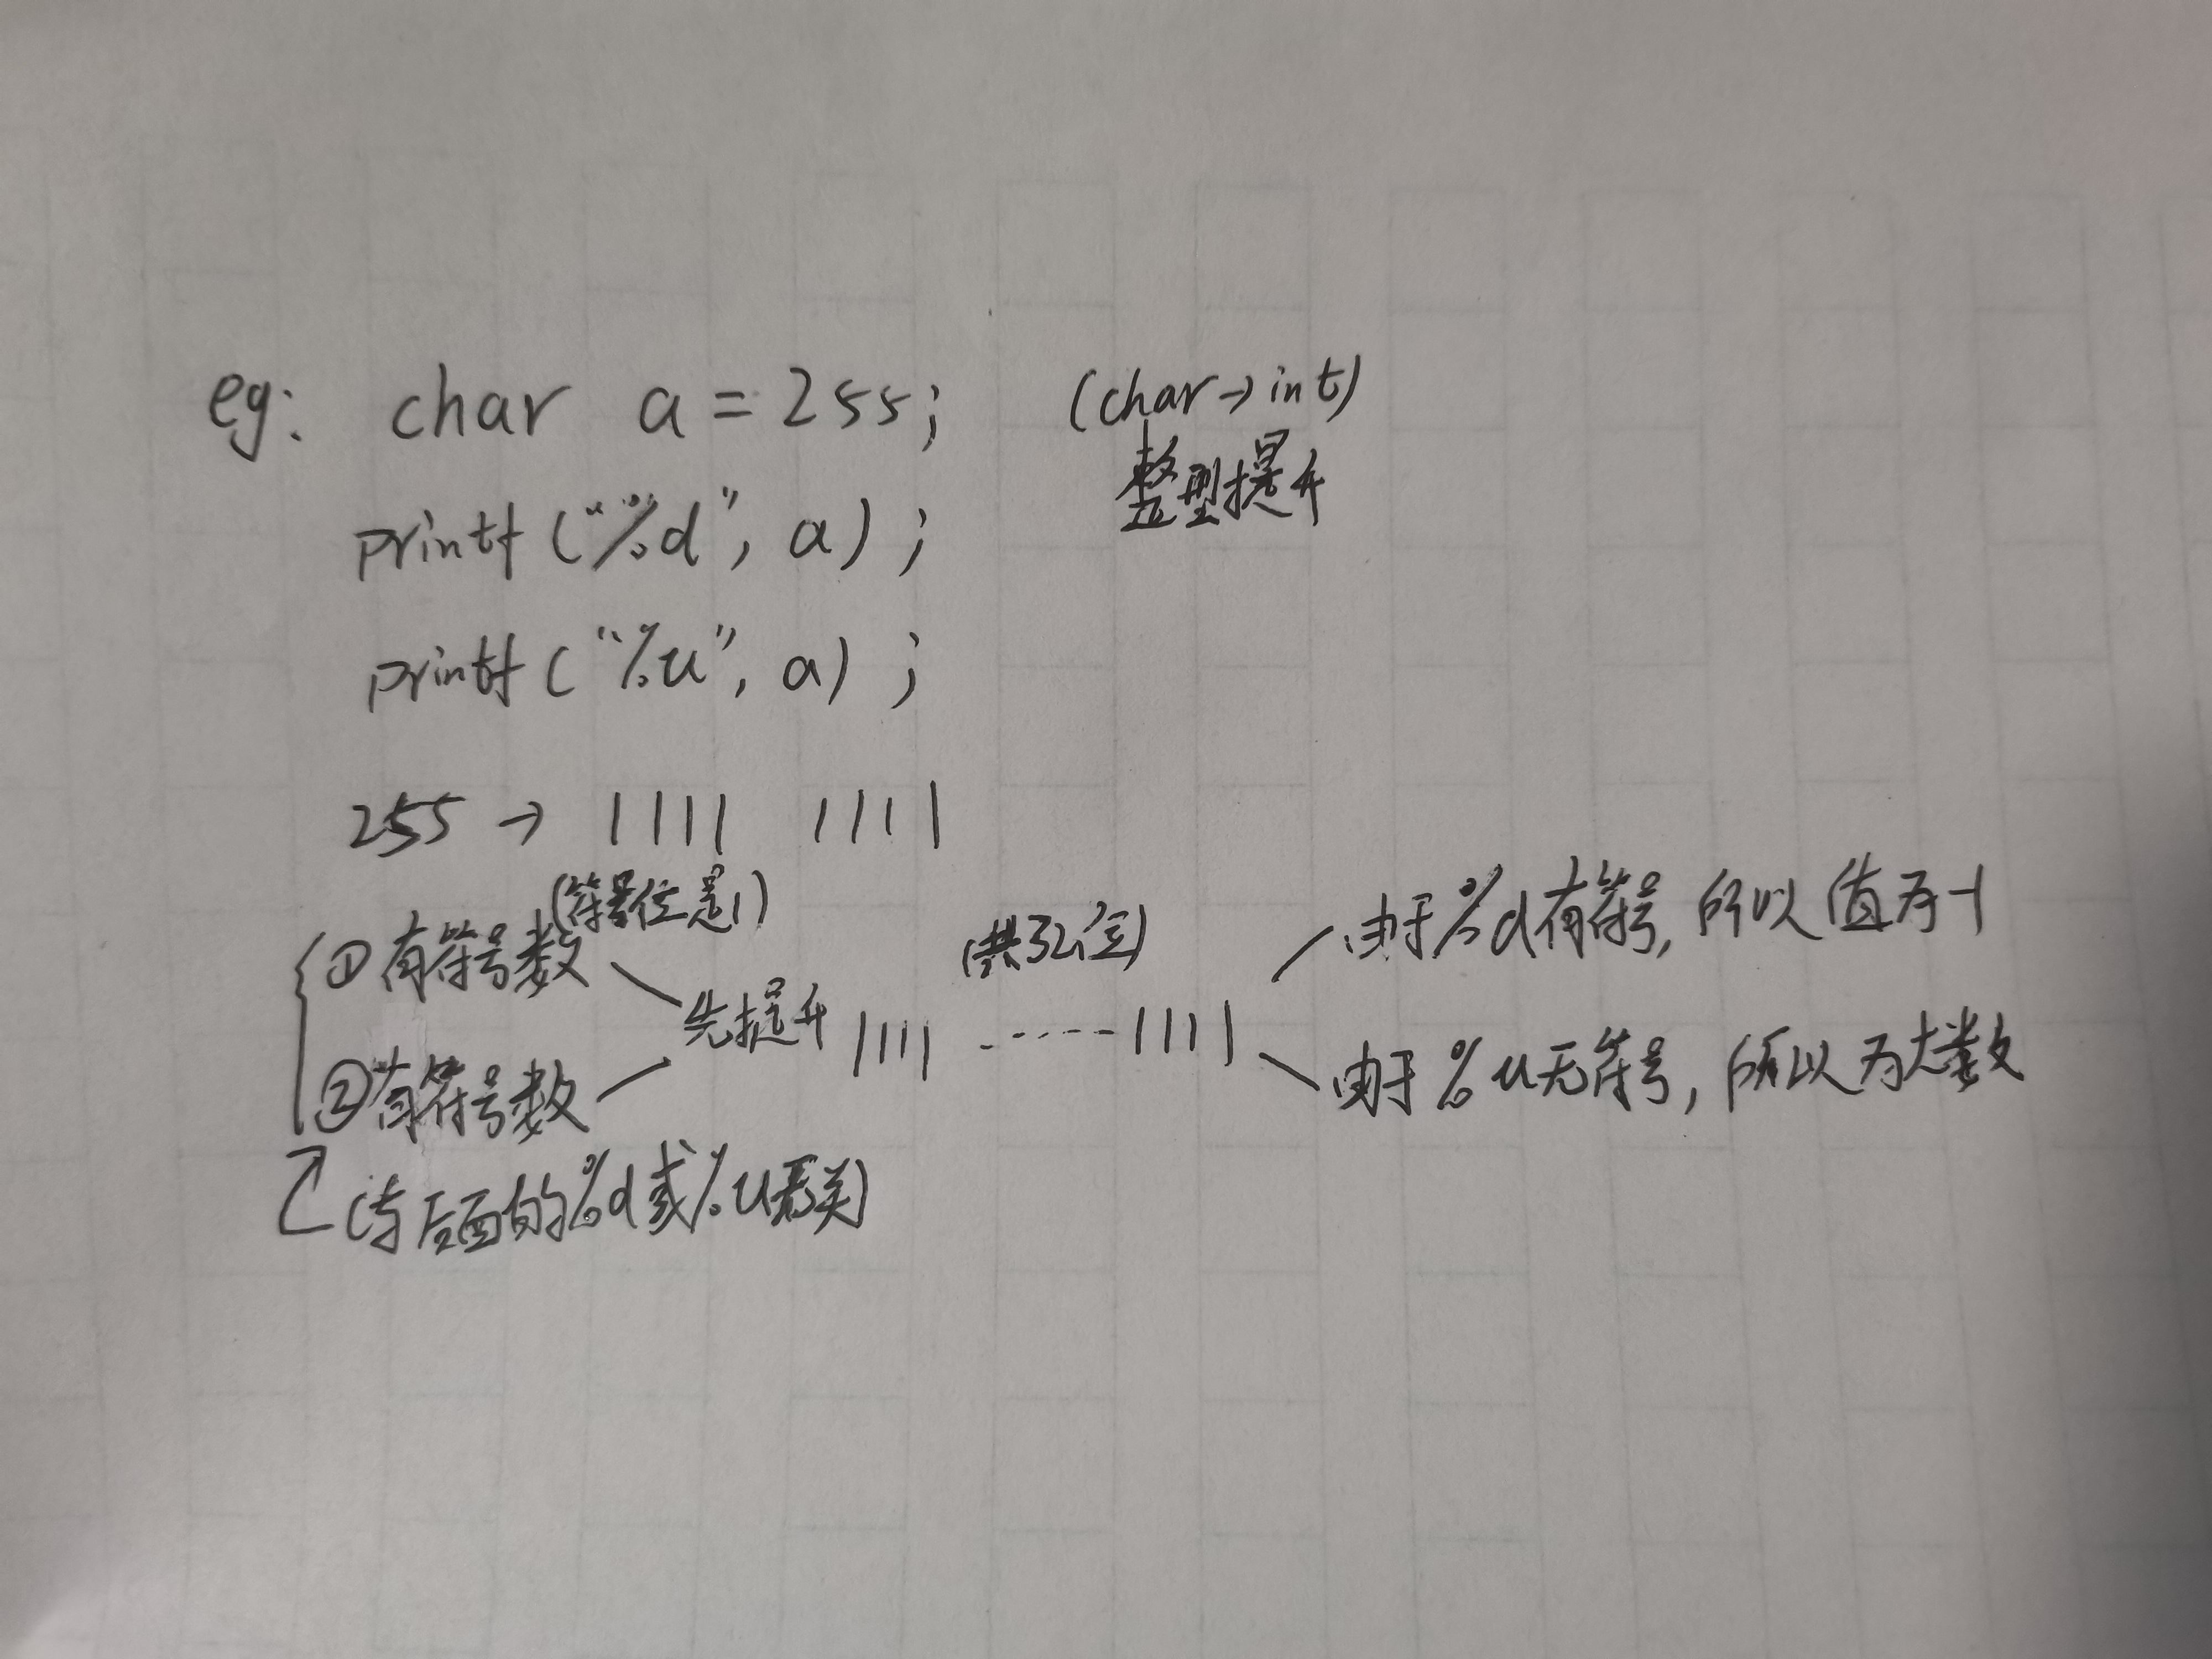 eg: char a = 255; (char→int)
整型提升
printf ("%d", a) ;
printf ("%u", a) ;
255 → 1111 1111
(符号位是1)
①有符号数
②有符号数
先提升 1111 ------1111
(共32位)
由于%d有符号,所以值为-1
由于%u无符号,所以为大数
(与后面的%d或%u无关)